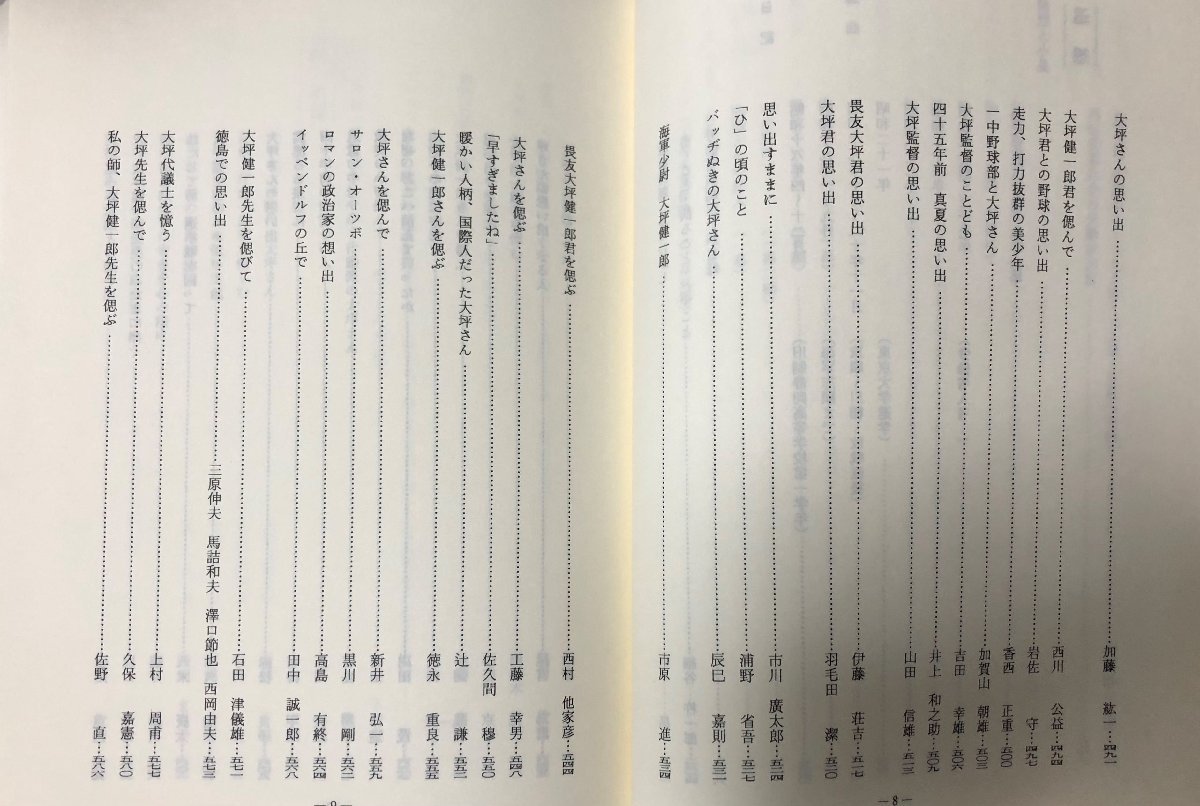 大坪さんの思い出……加藤 紘一…四九一
大坪健一郎君を偲んで……西川 公益…四九四
大坪君との野球の思い出……岩佐 守…四九七
走力、打力抜群の美少年……香西 正重…五〇〇
一中野球部と大坪さん……加賀山 朝雄…五〇三
大坪監督のことども……吉田 幸雄…五〇六
四十五年前 真夏の思い出……井上 和之助…五〇九
大坪監督の思い出……山田 信雄…五一三
畏友大坪君の思い出……伊藤 荘吉…五一七
大坪君の思い出……羽毛田 潔…五二〇
思い出すままに……市川 廣太郎…五二四
「ひ」の頃のこと……浦野 省吾…五二七
バッヂぬきの大坪さん……辰巳 嘉則…五三一
海軍少尉 大坪健一郎……市原 進…五三四
—8—
畏友大坪健一郎君を偲ぶ……西村 他家彦…五四四
大坪さんを偲ぶ……工藤 幸男…五四八
「早すぎましたね」……佐久間 穆…五五〇
暖かい人柄、国際人だった大坪さん……辻 謙…五五二
大坪健一郎さんを偲ぶ……徳永 重良…五五五
大坪さんを偲んで……新井 弘一…五五九
サロン・オーツボ……黒川 剛…五六二
ロマンの政治家の想い出……高島 有終…五六四
イッペンドルフの丘で……田中 誠一郎…五六八
大坪健一郎先生を偲びて……石田 津儀雄…五七一
徳島での思い出……三原伸夫 馬詰和夫 澤口節也 西岡由夫…五七三
大坪代議士を憶う……上村 周甫…五七七
大坪先生を偲んで……久保 嘉憲…五八〇
私の師、大坪健一郎先生を偲ぶ……佐野 直…五八六
—9—